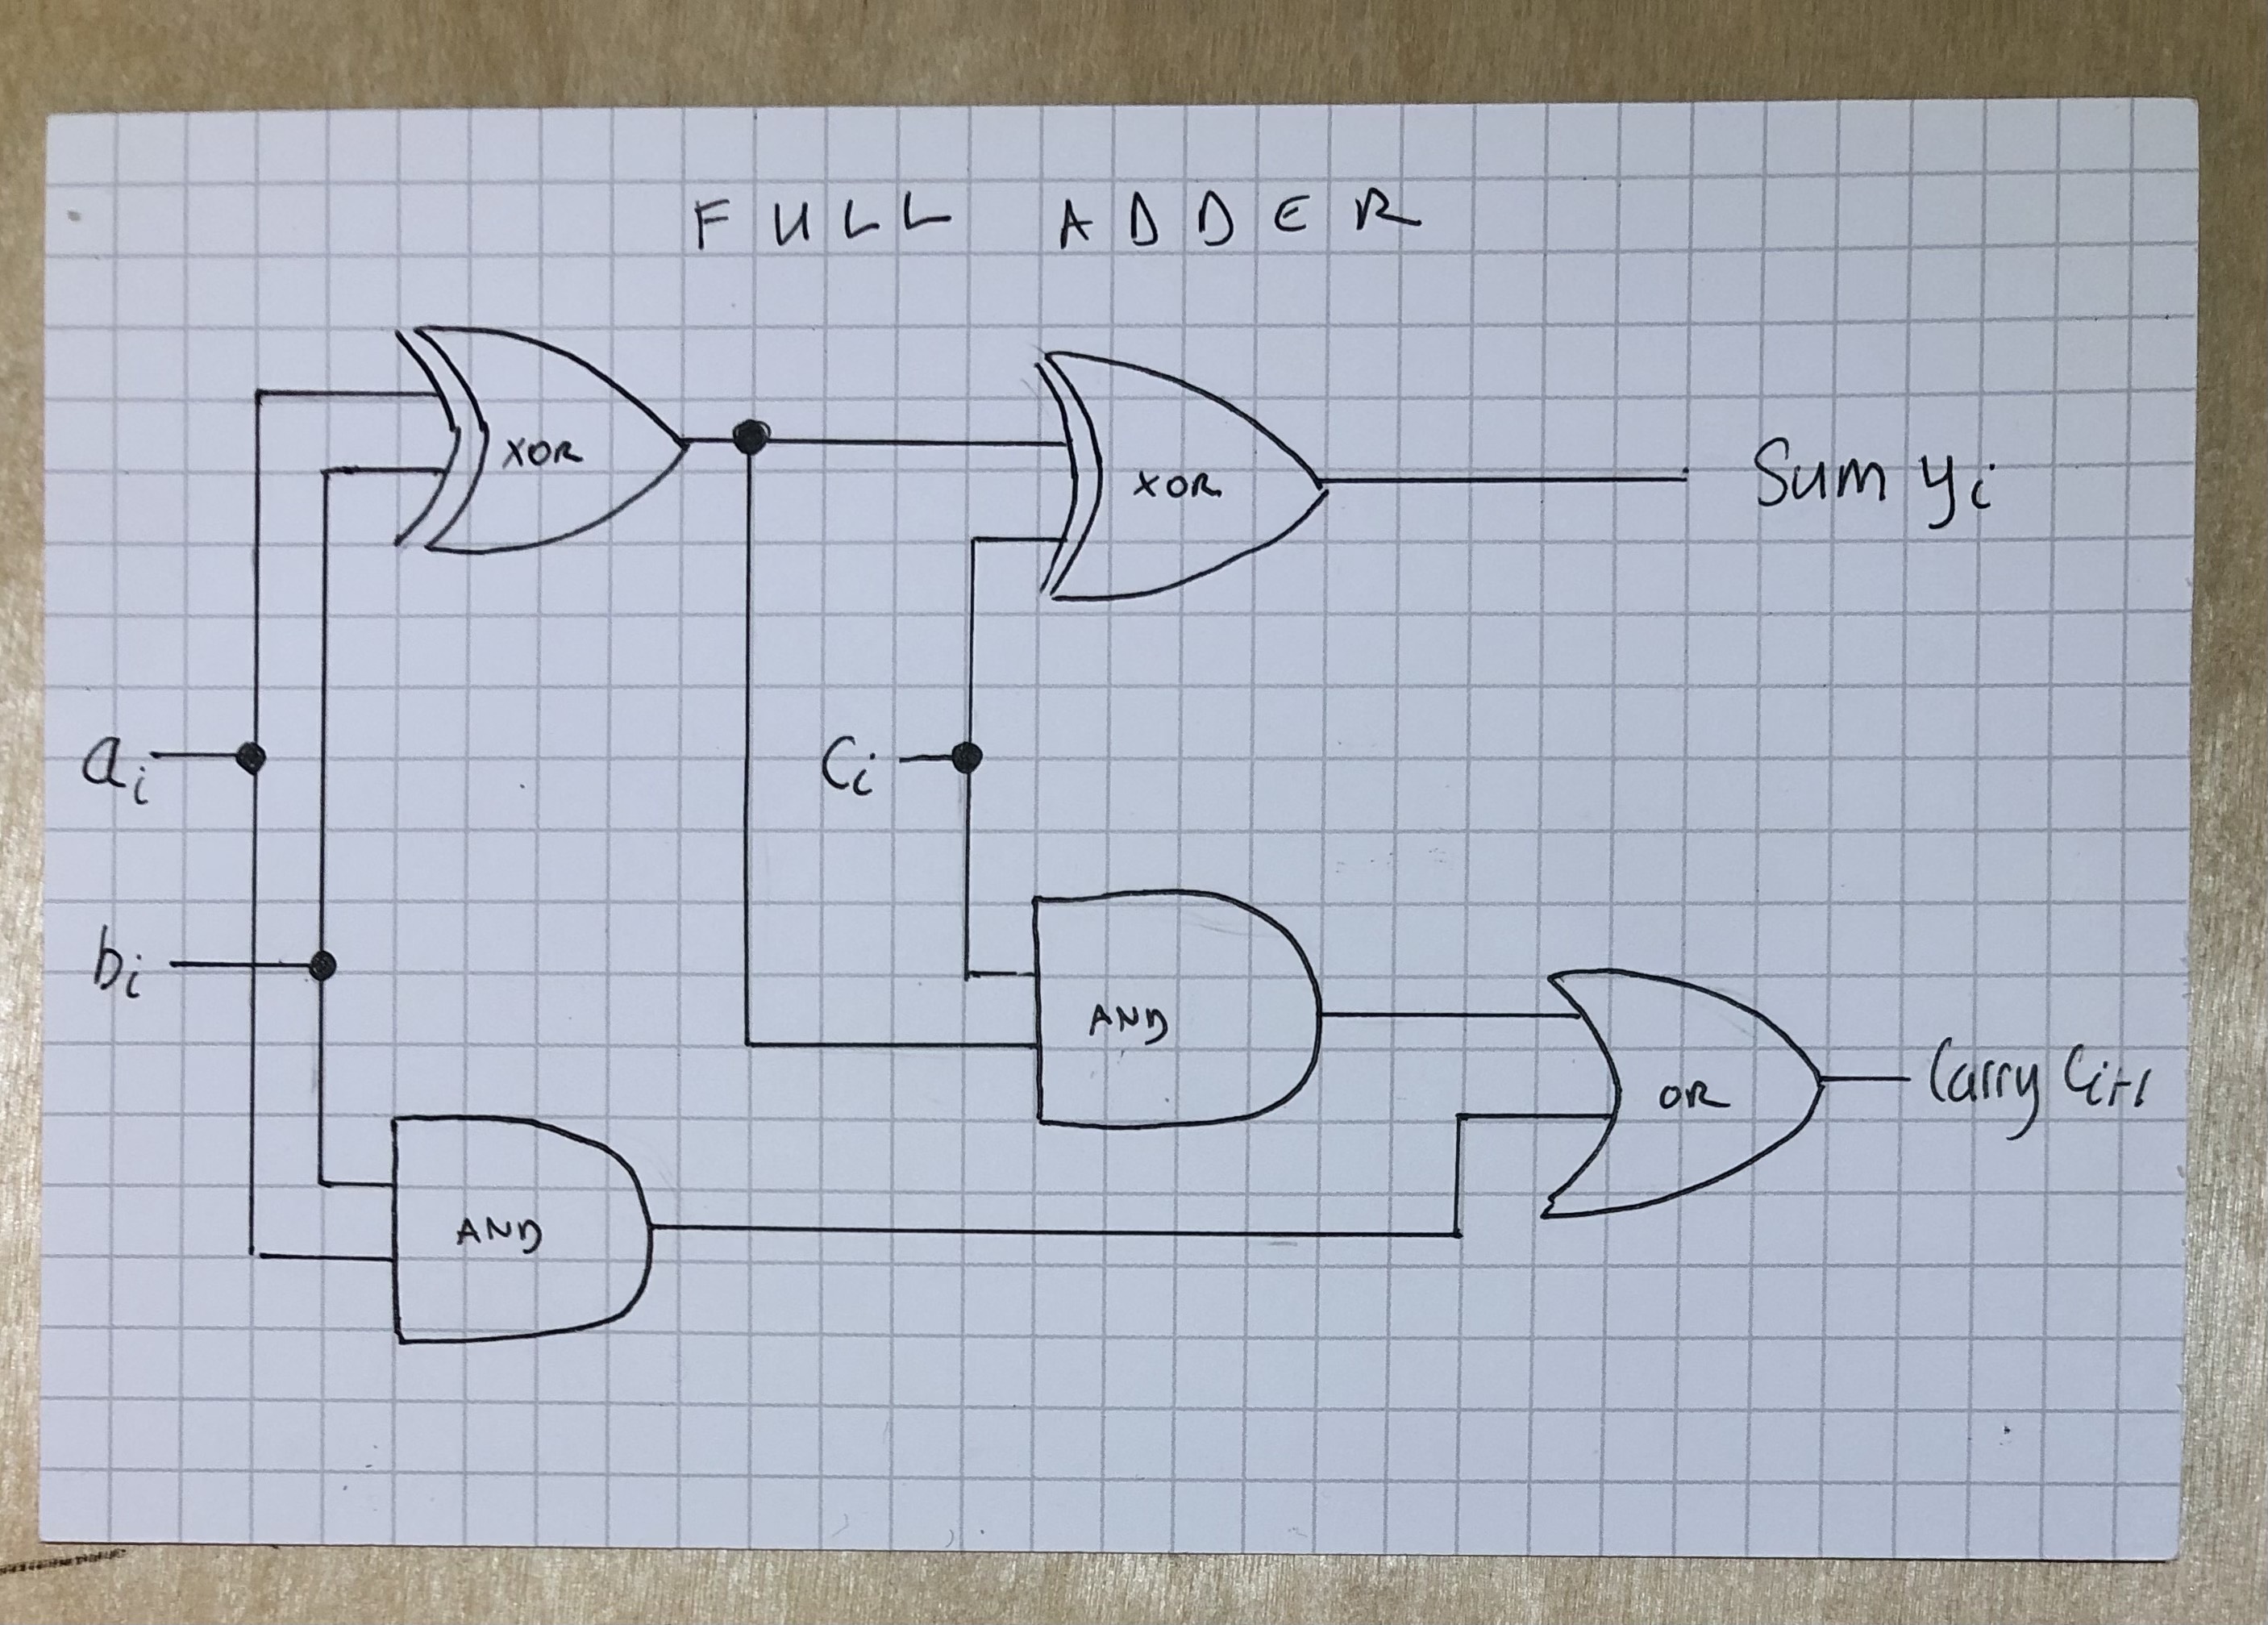 FULL ADDER
XOR
XOR
Sum yi
ai
ci
bi
AND
OR
Carry ci+1
AND